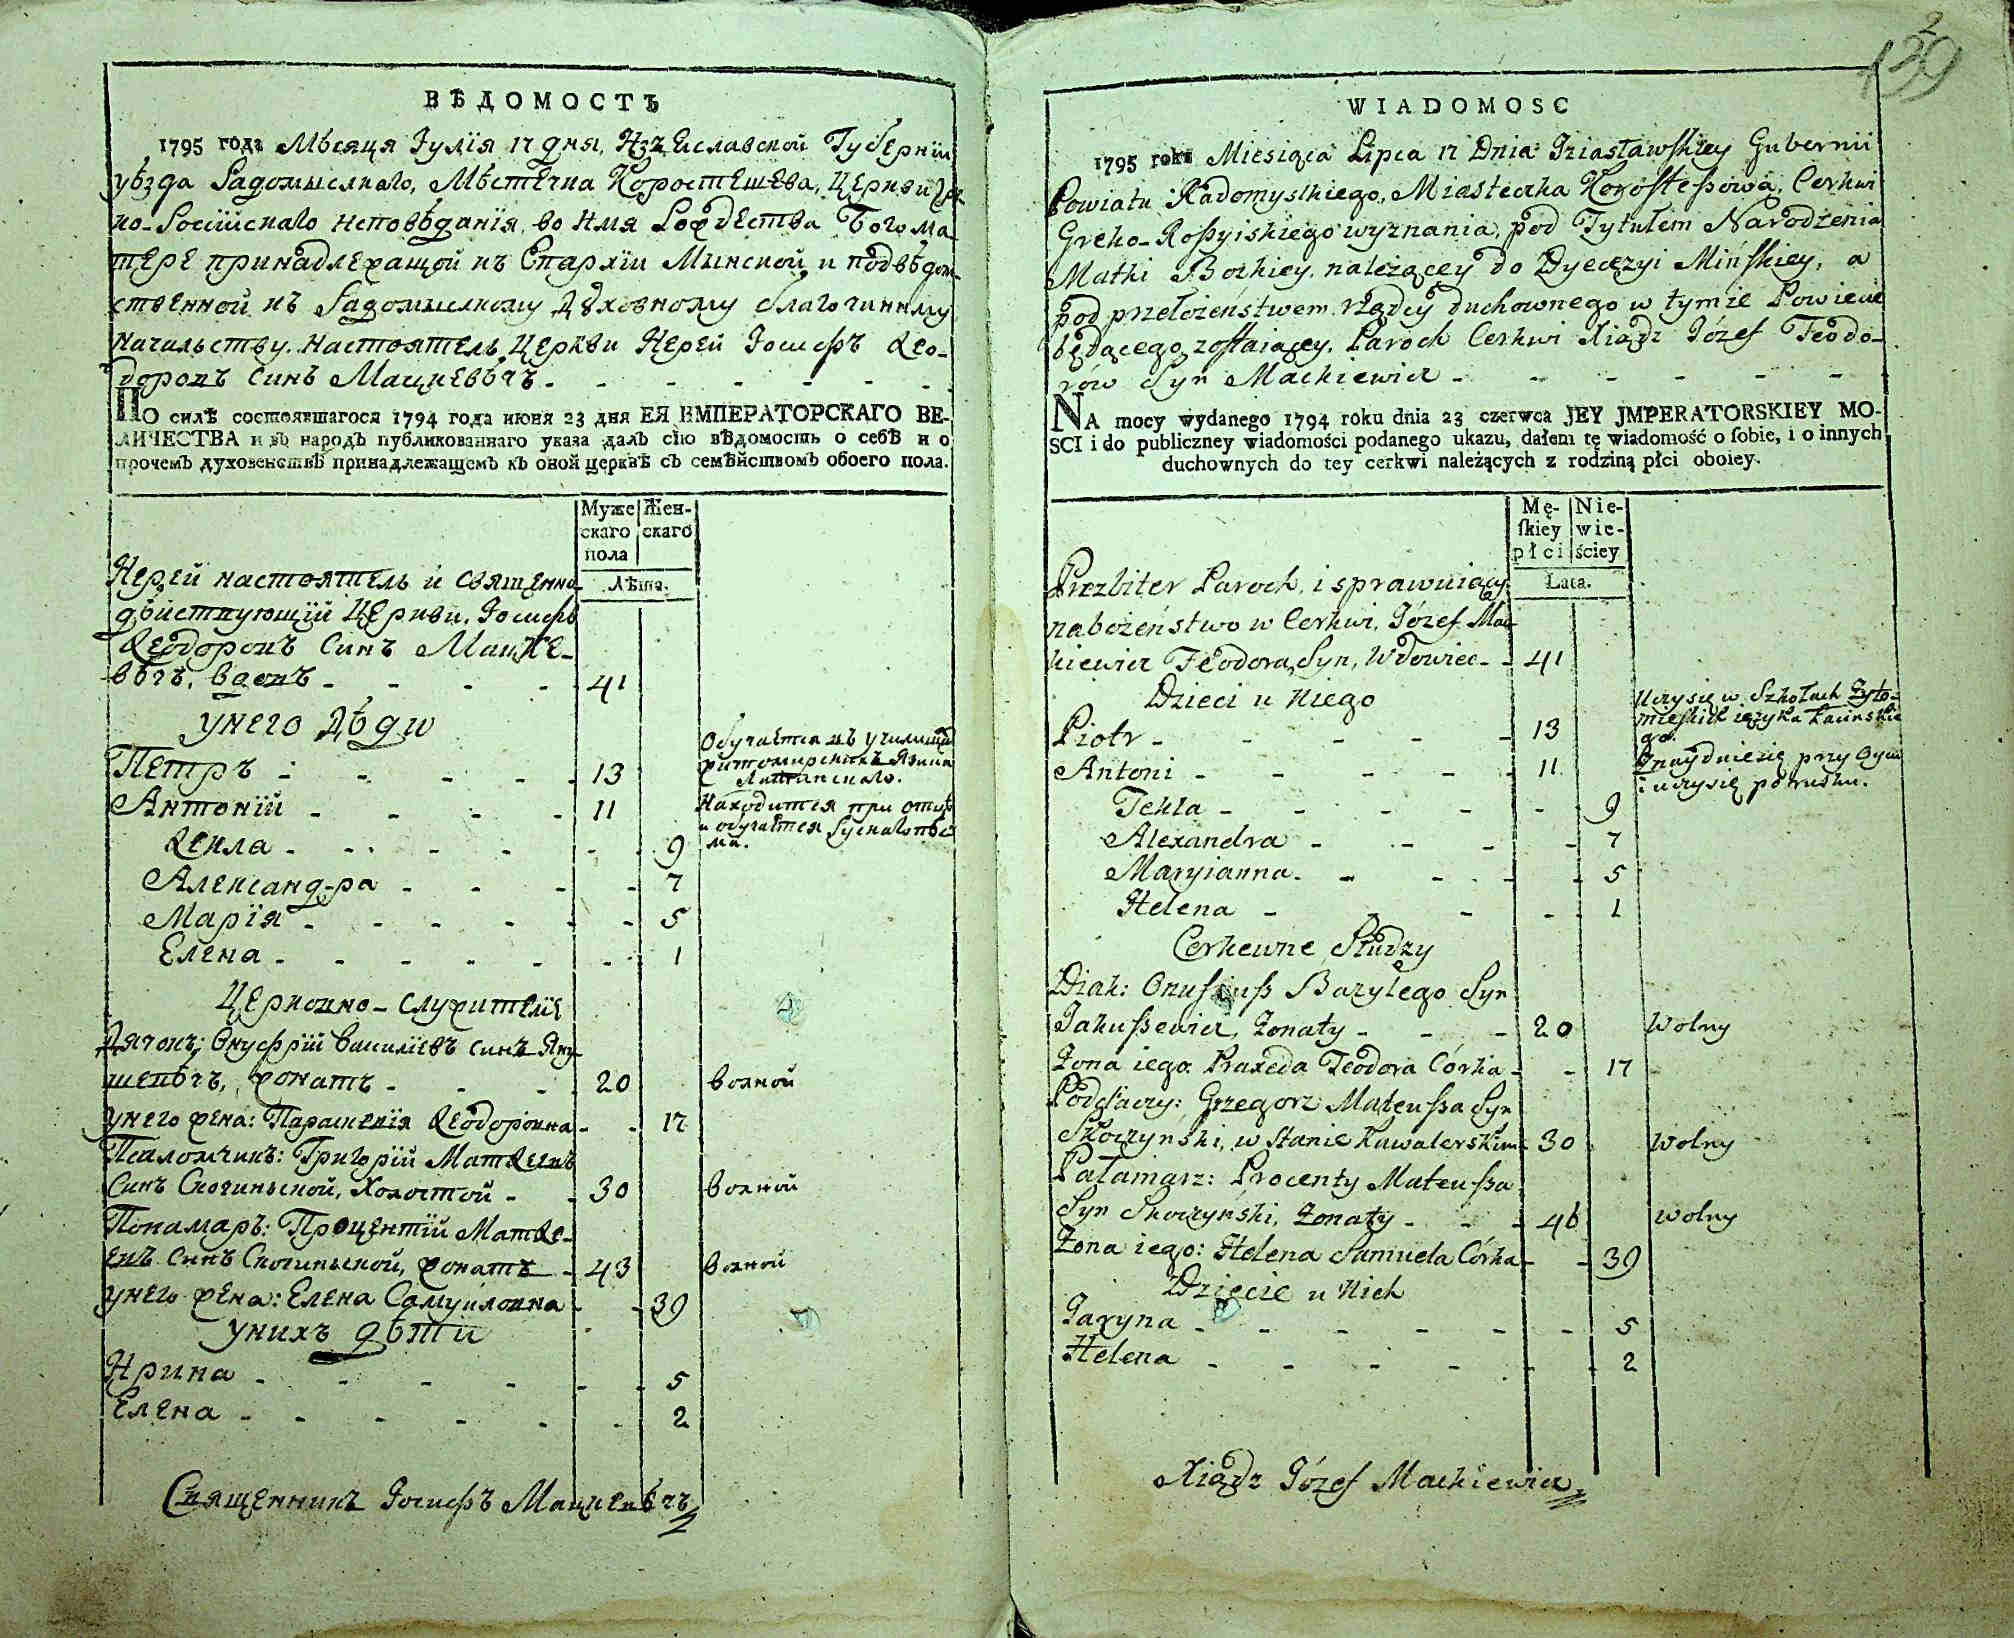 ВѢДОМОСТЬ
1795 года Мѣсяця Іулія 17 дня, Изъяславской Губерніи
уѣзда Радомыслкаго, Мѣстечка Коростешева, Церкви Гре
ко-Россійскаго исповѣданія, во имя Рождества Богома
тере принадлежащой къ Епархіи Минской и подвѣдом
ственной къ Радомыслкому Духовному благочинному
Начальству. Настоятель Церкви Иерей Іосифъ Ѳео-
доровъ синъ Мацкевѣчъ
ПО силѣ состоявшагося 1794 года июня 23 дня ЕЯ ИМПЕРАТОРСКАГО ВЕ-
ЛИЧЕСТВА и въ народъ публикованнаго указа далъ сію вѣдомость о себѣ и о
прочемъ духовенствѣ принадлежащемъ къ оной церквѣ съ семѣйствомъ обоего пола.
Муже Жен-
скаго скаго
пола
Лѣта.
Иерей настоятель и священно
дѣйствующій Церкви, Іосифъ
Ѳеодоровъ Синъ Мацке-
вѣчъ, вдовъ - - - - 41
унего дѣди
Петръ - - - - - 13 Обучается въ училищѣ
житомирскихъ язика
Латинскаго.
Антоній - - - - 11 Находится при отцѣ
и обучается Рускаго пѣс
ма.
Ѳекла - - - - - - 9
Александра - - - - 7
Марія - - - - - - 5
Елена - - - - - - 1
Церковно-служителіе
Дячокъ: Онуфрій Василіевъ синъ Яку
шевѣчъ, жонатъ - - - 20 волной
унего жена: Параскевія Ѳеодоровна - - 17
Псаломчикъ: Григорій Матѳеевъ
Синъ Скочинской, Холостой - - 30 волной
Понамаръ: Процентій Матѳе-
евъ синъ Скочинской, жонатъ - 43 волной
унего жена: Елена Самуиловна - - 39
унихъ дѣти
Ирина - - - - - - 5
Елена - - - - - - 2
Священникъ Іосифъ Мацкевѣчъ
2
139
WIADOMOSC
1795 roku Miesiąca Lipca 17 Dnia: Iziasławskiey Gubernii
Powiatu Radomyslkiego, Miasteczka Korosteszowa, Cerkwi
Greko-Roßyiskiego wyznania, pod Tytułem Narodżenia
Matki Bozkiey, należącey do Dyecezyi Mińskiey, a
pod przełożeństwem rządcy duchownego w tymże Powiecie
będącego zostaiącey. Paroch Cerkwi Xiądz Józef Teodo-
rów Syn Mackiewicz - - - - - -
NA mocy wydanego 1794 roku dnia 23 czerwca JEY JMPERATORSKIEY MO-
SCI i do publiczney wiadomości podanego ukazu, dałem tę wiadomość o ſobie, i o innych
duchownych do tey cerkwi należących z rodziną płci oboiey.
Mę- Nie-
ſkiey wie-
płci ściey
Lata.
Prezbiter Paroch, i sprawuiący
nabożeństwo w Cerkwi, Józef Mac
kiewicz Teodora Syn, Wdowiec - - 41
Dzieci u Niego
Piotr - - - - - 13 Uczy się w Szkołach Żyto-
mierskich ięzyka Łacinskie
go.
Antoni - - - - - 11 Znaydzie się przy Oycu
i uczy się po rusku.
Tekla - - - - - - 9
Alexandra - - - - 7
Maryianna - - - - - 5
Helena - - - - 1
Cerkewne Słudzy
Diak: Onufriuß Bazylego Syn
Jakußewicz, Żonaty - - - 20 Wolny
Żona iego: Praxeda Teodora Córka - - 17
Podjaczy: Grzegorz Mateußa Syn
Skoczyński, w stanie Kawalerskim - 30 Wolny
Pałamarz: Procenty Mateußa
Syn Skoczyński, Żonaty - - - 46 Wolny
Żona iego: Helena Samuela Córka - - 39
Dziecie u Nich
Jaryna - - - - - - 5
Helena - - - - - - 2
Xiądz Józef Mackiewicz